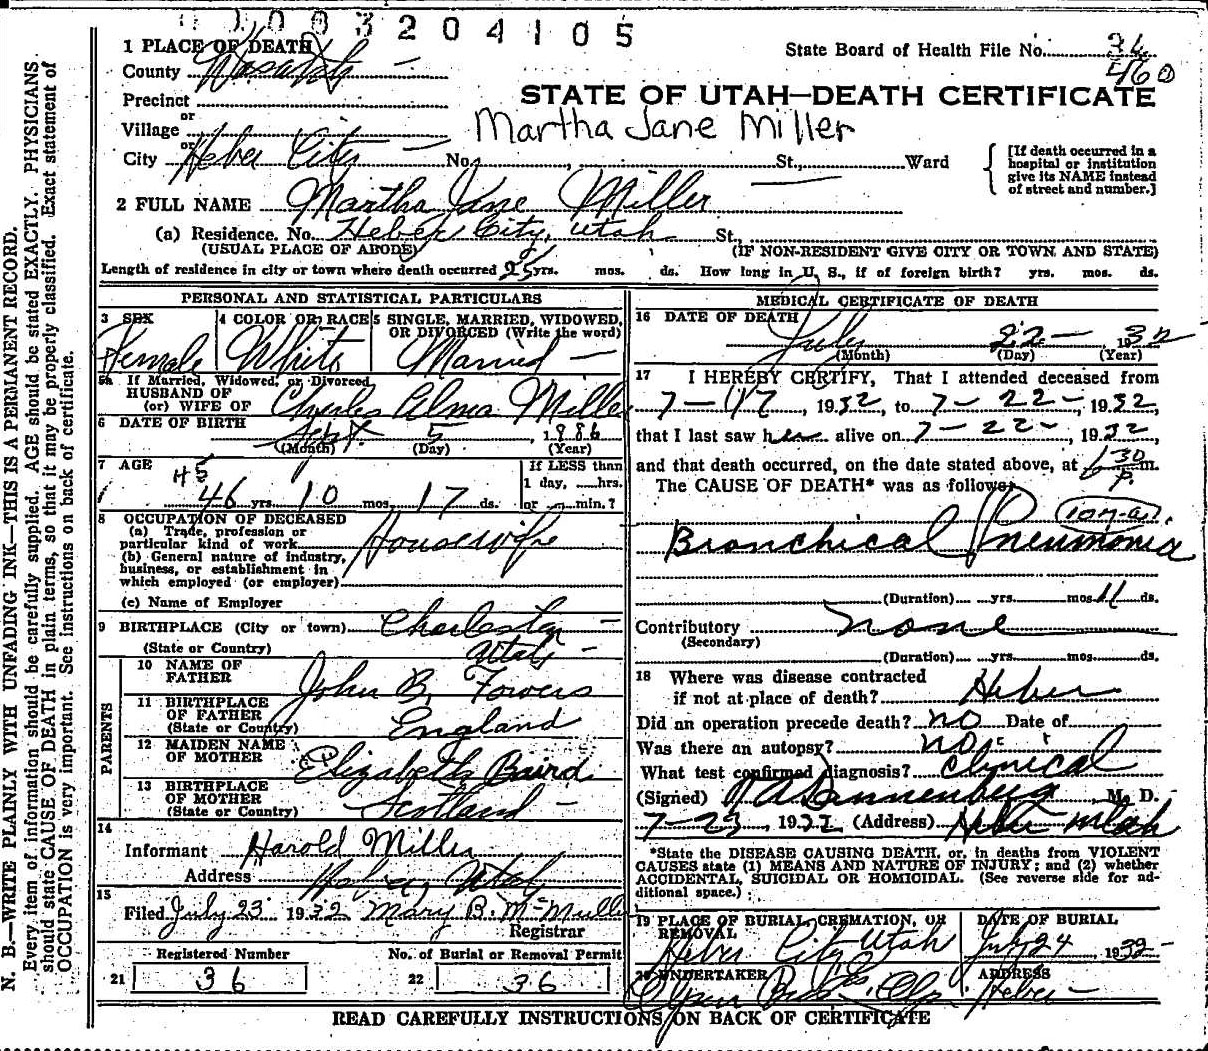 003204105
State Board of Health File No. 36
460
1 PLACE OF DEATH
County Wasatch
STATE OF UTAH—DEATH CERTIFICATE
Precinct
or
Village
or
Martha Jane Miller
City Heber City No. , St., Ward
[If death occurred in a hospital or institution give its NAME instead of street and number.]
2 FULL NAME Martha Jane Miller
(a) Residence. No. Heber City, Utah St.,
(USUAL PLACE OF ABODE) (IF NON-RESIDENT GIVE CITY OR TOWN AND STATE)
Length of residence in city or town where death occurred 25 yrs. mos. ds. How long in U. S., if of foreign birth? yrs. mos. ds.
PERSONAL AND STATISTICAL PARTICULARS
3 SEX 4 COLOR OR RACE 5 SINGLE, MARRIED, WIDOWED, OR DIVORCED (Write the word)
Female White Married
5a If Married, Widowed, or Divorced,
HUSBAND OF
(or) WIFE OF Charles Alma Miller
6 DATE OF BIRTH Sept. 5, 1886
(Month) (Day) (Year)
7 AGE 45
46 yrs. 10 mos. 17 ds.
If LESS than
1 day, hrs.
or min.?
8 OCCUPATION OF DECEASED
(a) Trade, profession or
particular kind of work Housewife
(b) General nature of industry,
business, or establishment in
which employed (or employer)
(c) Name of Employer
9 BIRTHPLACE (City or town) Charleston
(State or Country) Utah
PARENTS
10 NAME OF
FATHER John B. Fowers
11 BIRTHPLACE
OF FATHER England
(State or Country)
12 MAIDEN NAME
OF MOTHER Elizabeth Baird
13 BIRTHPLACE
OF MOTHER Scotland
(State or Country)
14
Informant Harold Miller
Address Heber, Utah
15
Filed July 23 1932 Mary B. McMullin
Registrar
Registered Number No. of Burial or Removal Permit
21 36 22 36
MEDICAL CERTIFICATE OF DEATH
16 DATE OF DEATH
July 22 1932
(Month) (Day) (Year)
17 I HEREBY CERTIFY, That I attended deceased from
7-17, 1932, to 7-22-, 1932,
that I last saw her alive on 7-22-, 1932,
and that death occurred, on the date stated above, at 6 30 P. m.
The CAUSE OF DEATH* was as follows:
107-a
Bronchical Pneumonia
(Duration) yrs. mos. 11 ds.
Contributory none
(Secondary)
(Duration) yrs. mos. ds.
18 Where was disease contracted
if not at place of death? Heber
Did an operation precede death? no Date of
Was there an autopsy? no
What test confirmed diagnosis? Clinical
(Signed) M. D.
7-23, 1932 (Address) Heber Utah
*State the DISEASE CAUSING DEATH, or, in deaths from VIOLENT
CAUSES state (1) MEANS AND NATURE OF INJURY; and (2) whether
ACCIDENTAL, SUICIDAL OR HOMICIDAL. (See reverse side for ad-
ditional space.)
19 PLACE OF BURIAL, CREMATION, OR
REMOVAL DATE OF BURIAL
Heber City Utah July 24, 1932
20 UNDERTAKER ADDRESS
Heber
READ CAREFULLY INSTRUCTIONS ON BACK OF CERTIFICATE
N. B.—WRITE PLAINLY WITH UNFADING INK—THIS IS A PERMANENT RECORD.
Every item of information should be carefully supplied. AGE should be stated EXACTLY. PHYSICIANS
should state CAUSE OF DEATH in plain terms, so that it may be properly classified. Exact statement of
OCCUPATION is very important. See instructions on back of certificate.